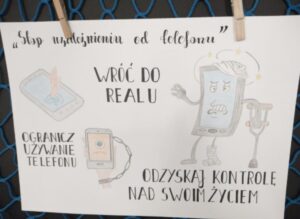 „Stop uzależnieniu od telefonu"
WRÓĆ DO
REALU
OGRANICZ
UŻYWANIE
TELEFONU
ODZYSKAJ KONTROLĘ
NAD SWOIM ŻYCIEM